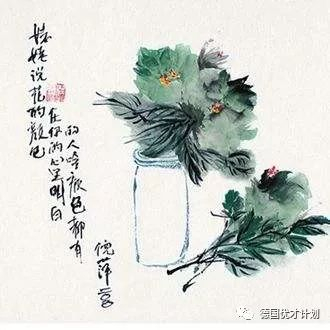 姥姥说花的颜色
在你的心里明白
的人啥颜色都有
倪萍
德国优才计划